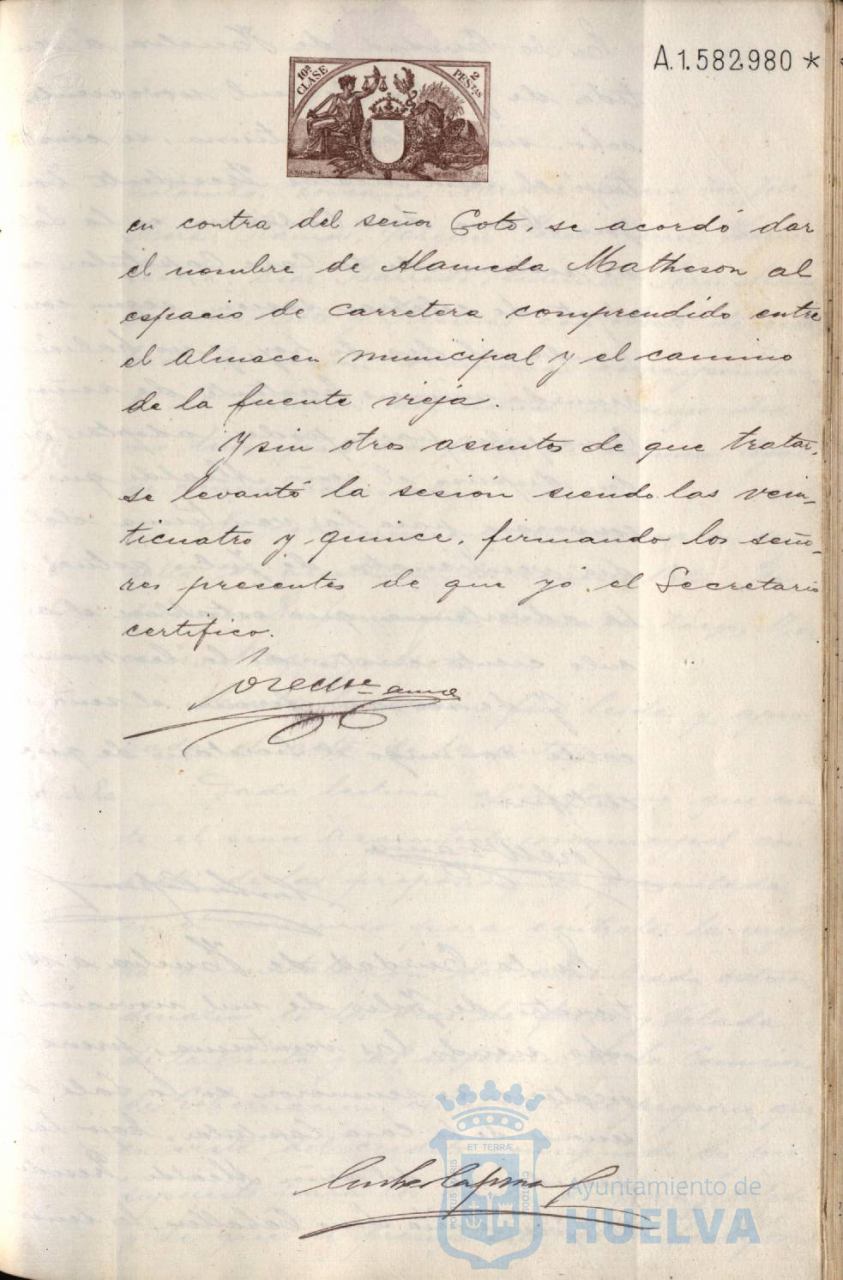 A.1.582.980 *
10ª CLASE
2 PESTAS
en contra del señor Coto, se acordó dar
el nombre de Alameda Matheson al
espacio de carretera comprendido entre
el Almacen municipal y el camino
de la fuente vieja.
Y sin otros asuntos de que tratar,
se levantó la sesión siendo las vein-
ticuatro y quince, firmando los seño-
res presentes de que yó el Secretario
certifico.
ET TERRÆ
PORTUS MARIS
CUSTODIA
Ayuntamiento de
HUELVA